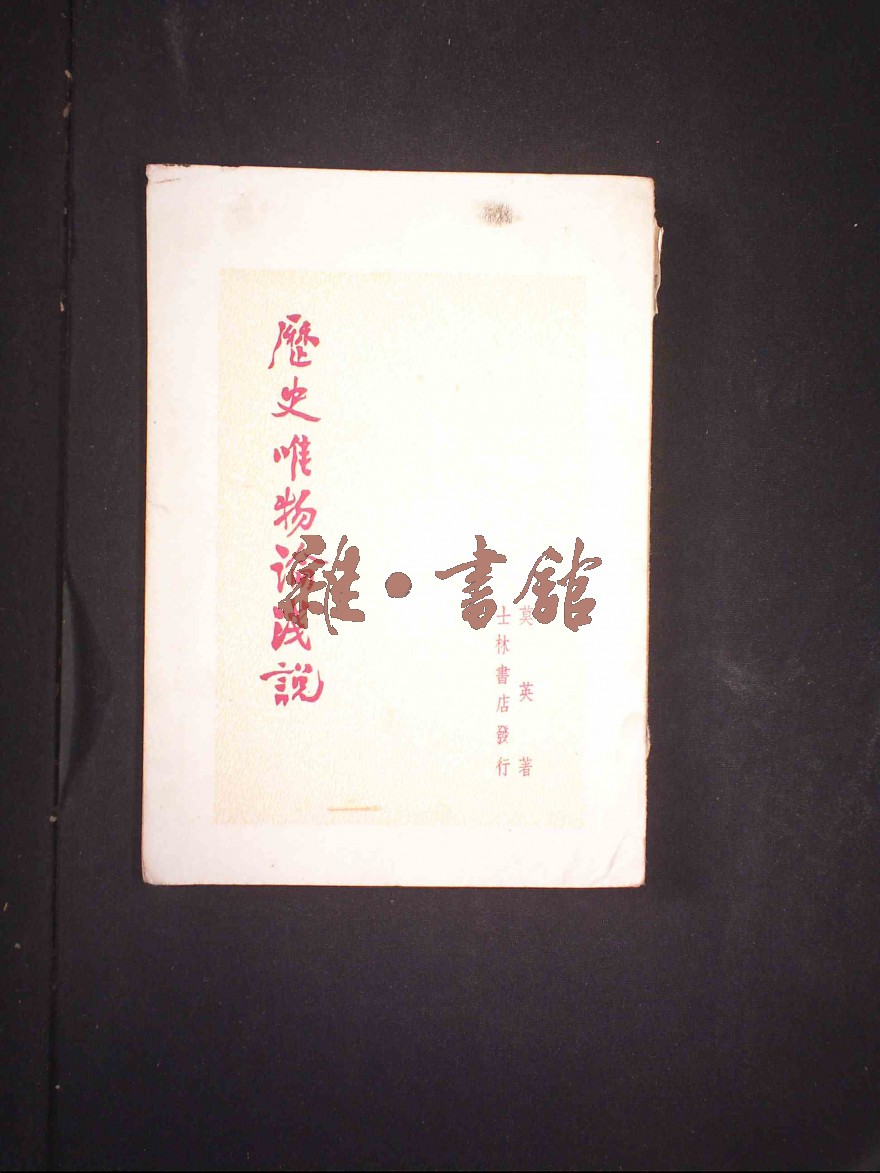 歷史唯物論浅説
莫英著
士林書店發行
雜·書館